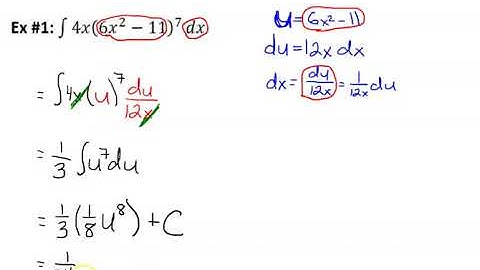 Ex #1: ∫ 4x(6x² − 11)⁷ dx
u = 6x² − 11
du = 12x dx
dx = du/12x = 1/12x du
= ∫ 4x (u)⁷ du/12x
= 1/3 ∫ u⁷ du
= 1/3 (1/8 u⁸) + C
= 1